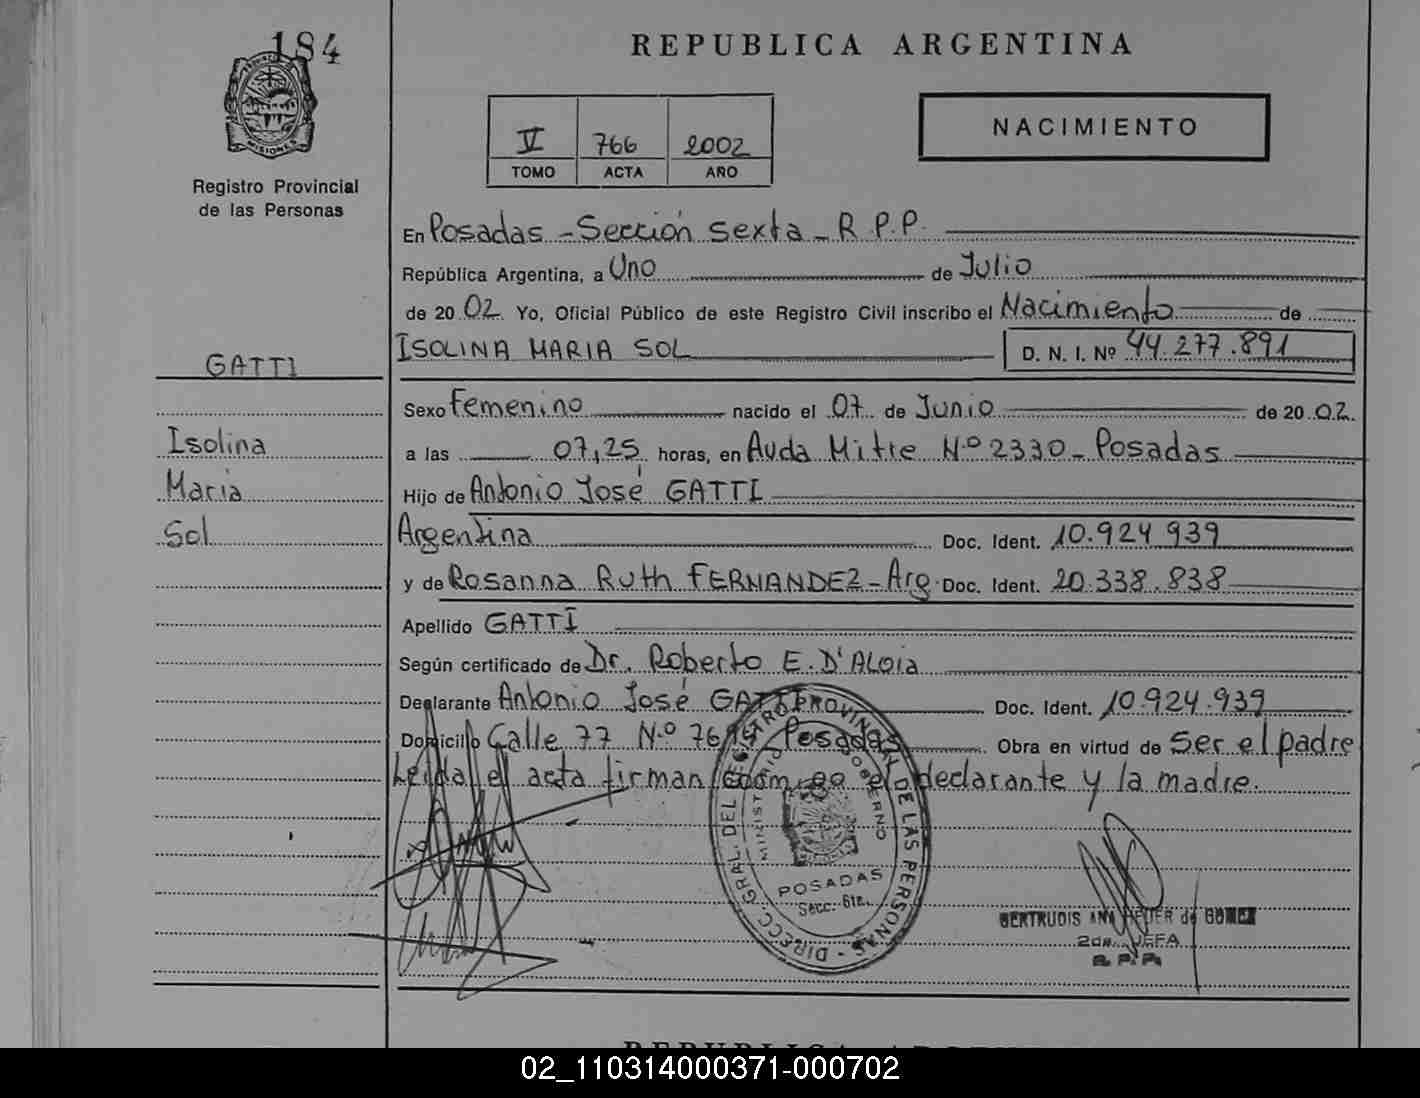 184
REPUBLICA ARGENTINA
MISIONES
Registro Provincial
de las Personas
V 766 2002
TOMO ACTA AÑO
NACIMIENTO
En Posadas - Sección Sexta - R P.P.
República Argentina, a Uno de Julio
de 2002 Yo, Oficial Público de este Registro Civil inscribo el Nacimiento de
GATTI
ISOLINA MARIA SOL D. N. I. Nº 44.277.891
Sexo Femenino nacido el 07 de Junio de 2002.
Isolina
a las 07,25 horas, en Avda Mitre Nº 2330 - Posadas
Maria
Hijo de Antonio José GATTI
Sol
Argentina Doc. Ident. 10.924.939
y de Rosanna Ruth FERNANDEZ - Arg. Doc. Ident. 20.338.838
Apellido GATTI
Según certificado de Dr. Roberto E. D'ALOIA
Declarante Antonio José GATTI Doc. Ident. 10.924.939
Domicilio Calle 77 Nº Posadas Obra en virtud de Ser el padre
Leida el acta firman conmigo el declarante y la madre.
DIRECC. GRAL. DEL REGISTRO PROVINCIAL DE LAS PERSONAS
MINISTERIO GOBIERNO
POSADAS
Secc. 6ta.
GERTRUDIS ANA de
2da. JEFA
R. P. P.
REPUBLICA ARGENTINA
02_110314000371-000702